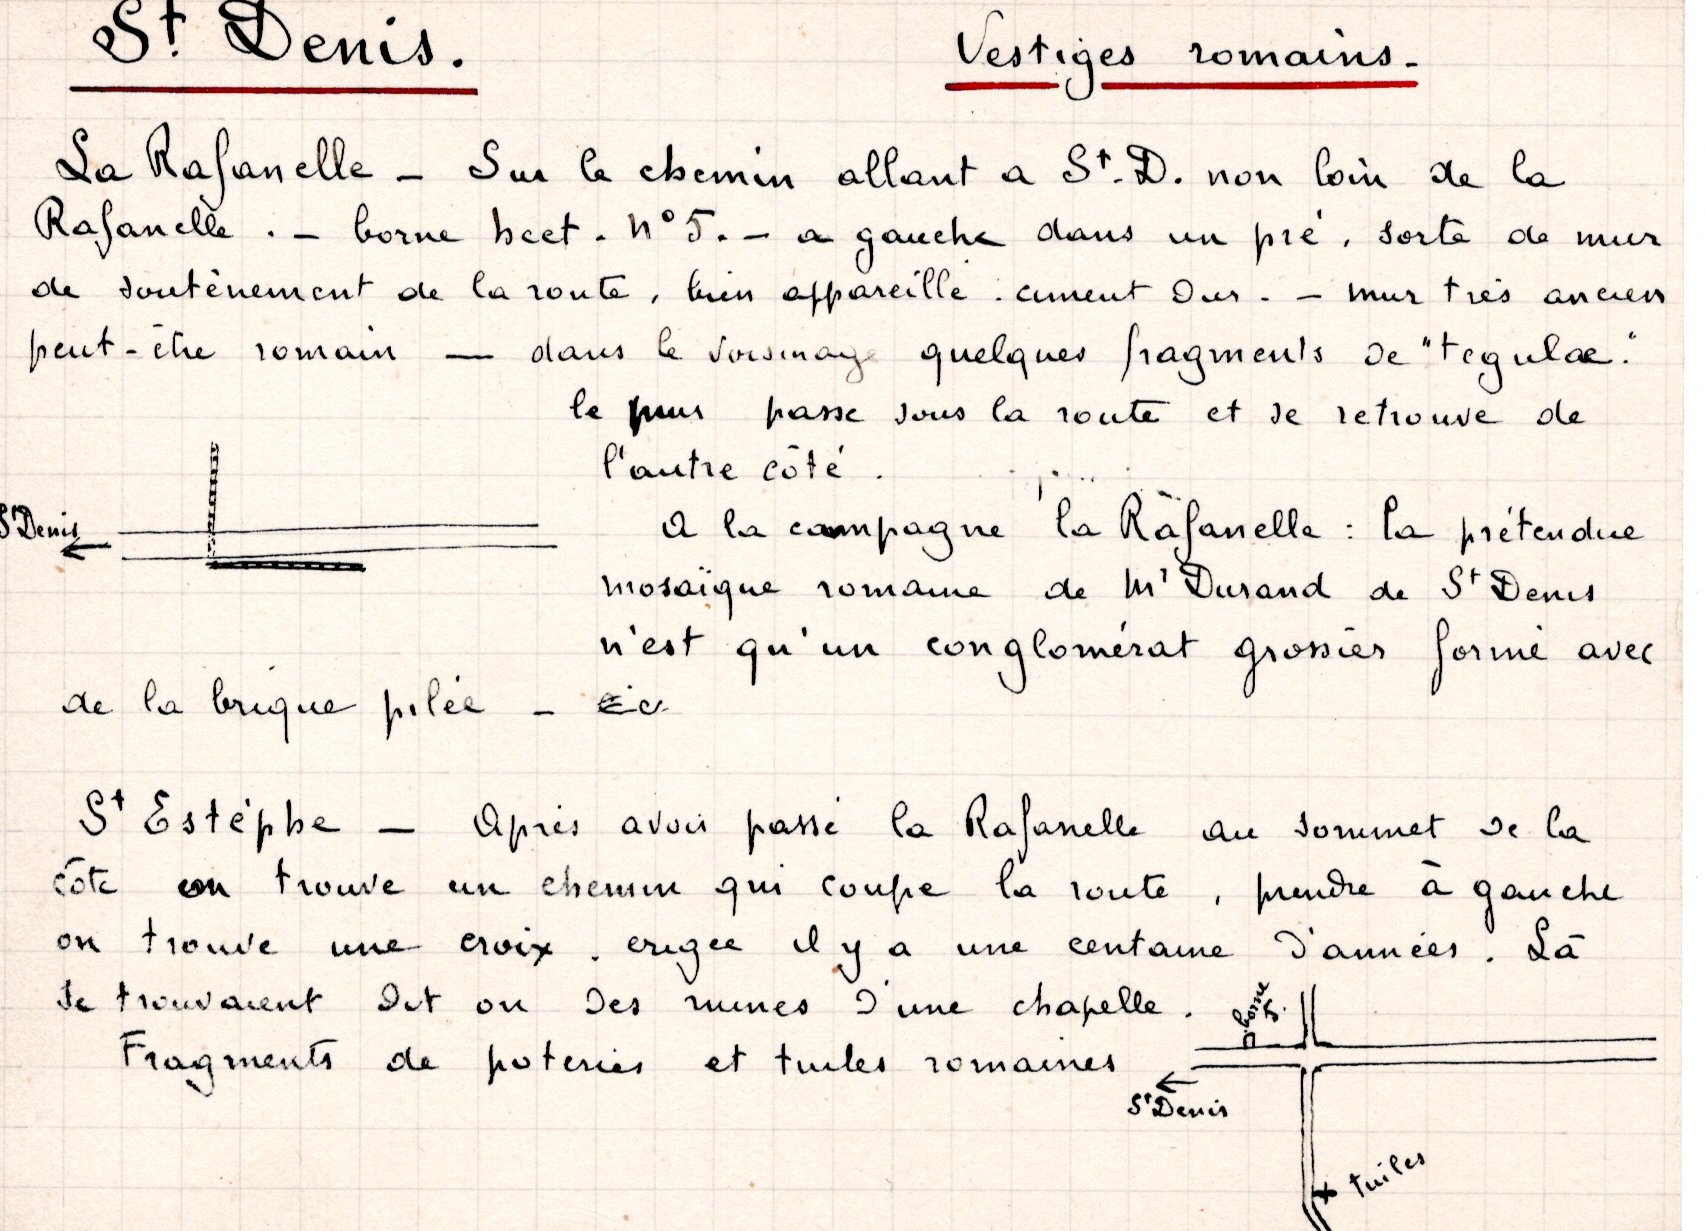 St Denis.
Vestiges romains.
La Rafanelle - Sur le chemin allant a St. D. non loin de la
Rafanelle. - borne hect. n° 5. - a gauche dans un pré, sorte de mur
de soutènement de la route, bien appareillé. ciment dur. - mur très ancien
peut-être romain - dans le voisinage quelques fragments de "tegulae."
le mur passe sous la route et se retrouve de
l'autre côté.
St Denis
A la campagne la Rafanelle : la prétendue
mosaïque romaine de Mr Durand de St Denis
n'est qu'un conglomérat grossier formé avec
de la brique pilée -
St Estéphe - Après avoir passé la Rafanelle au sommet de la
côte on trouve un chemin qui coupe la route, prendre à gauche
on trouve une croix. erigée il y a une centaine d'années. Là
se trouvaient dit on des ruines d'une chapelle.
Fragments de poteries et tuiles romaines
borne 5.
St Denis
tuiles